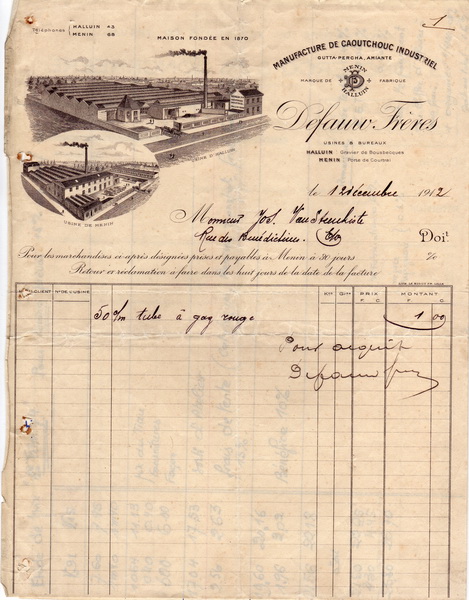 1
Téléphones HALLUIN 45
MENIN 68
MAISON FONDÉE EN 1870
MANUFACTURE DE CAOUTCHOUC INDUSTRIEL
GUTTA-PERCHA, AMIANTE
MARQUE DE FABRIQUE
MENIN
DF
HALLUIN
Defauw Frères
USINES & BUREAUX
HALLUIN Gravier de Bousbecques
MENIN Porte de Courtrai
USINE D'HALLUIN
USINE DE MENIN
le 12 décembre 1912
Monsieur Jos. Van
Rue des Bénédictines. E/V Doit
Pour les marchandises ci-après désignées prises et payables à Menin à 30 jours %
Retour et réclamation à faire dans les huit jours de la date de la facture
CLIENT N° DE L'USINE KM GR PRIX F. C. MONTANT F. C.
50 c/m tube à gaz rouge 1 00
Pour acquit
Defauw